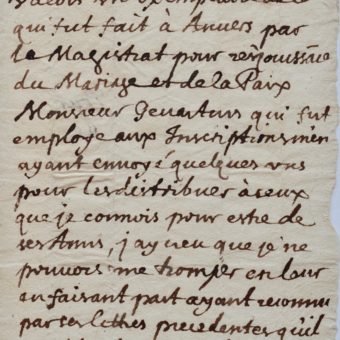 qui fut fait à Anvers par
le Magistrat pour resjouissãce
du Mariage et de la Paix
Monsieur Gevartius qui fut
employé aux Inscriptions m'en
ayant envoyé quelques uns
pour les distribuer à ceux
que je connois pour estre de
ses Amis, j'ay creu que je ne
pouvois me tromper en leur
en faisant part ayant reconnu
par ses lettres precedentes qu'il